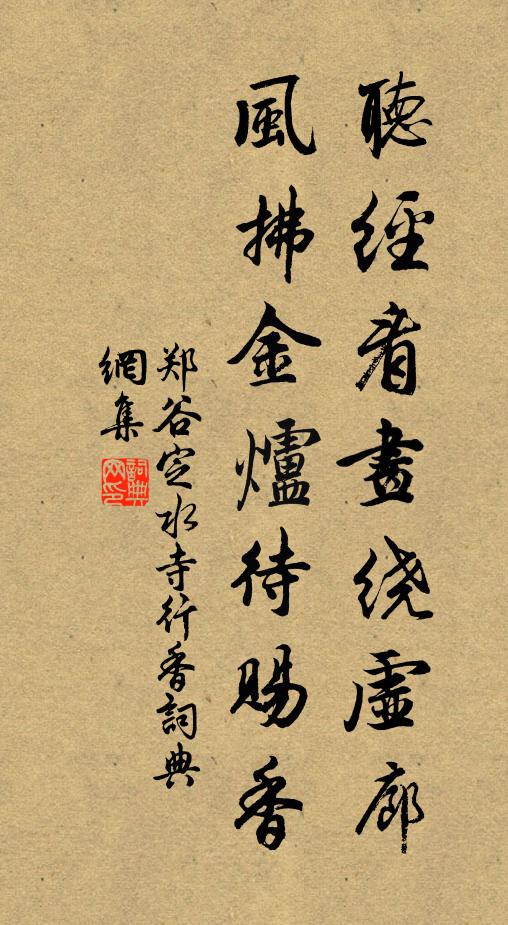 聽經看畫绕虛廊
風拂金爐待賜香
郑谷定水寺行香詞典
網集
詞典网印